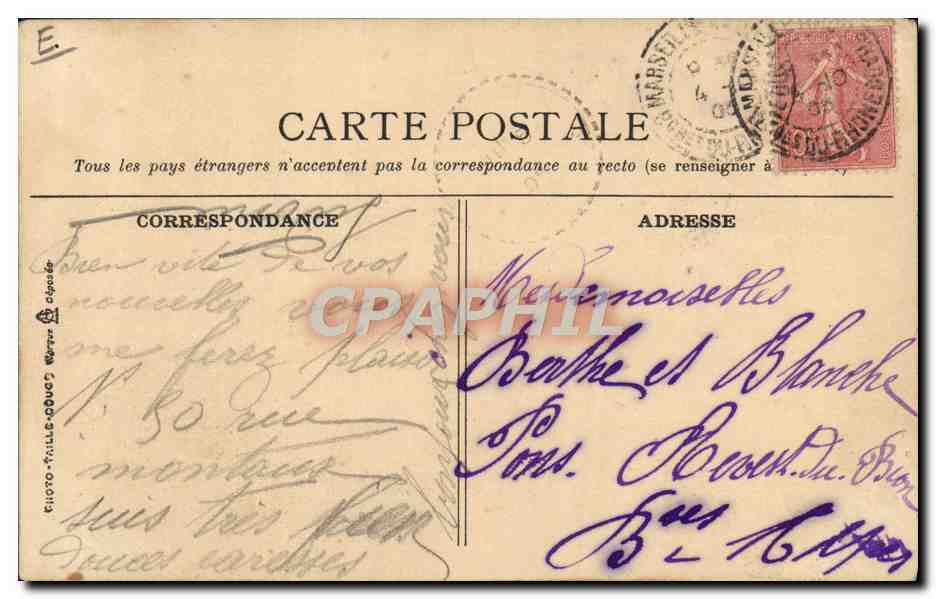 E.
CARTE POSTALE
Tous les pays étrangers n'acceptent pas la correspondance au recto (se renseigner à
CORRESPONDANCE
Bien vite de vos
nouvelles vous
me ferez plaisir
N. 50 rue
montaux
suis très
douces caresses
vous
PHOTO-TAILLE-DOUCE Marque Déposée
ADRESSE
Mesdemoiselles
Berthe et Blanche
Pons. Revest. du. Bion
Bses Alpes
MARSEILLE
BCHES-DU-RHONE
CPAPHIL